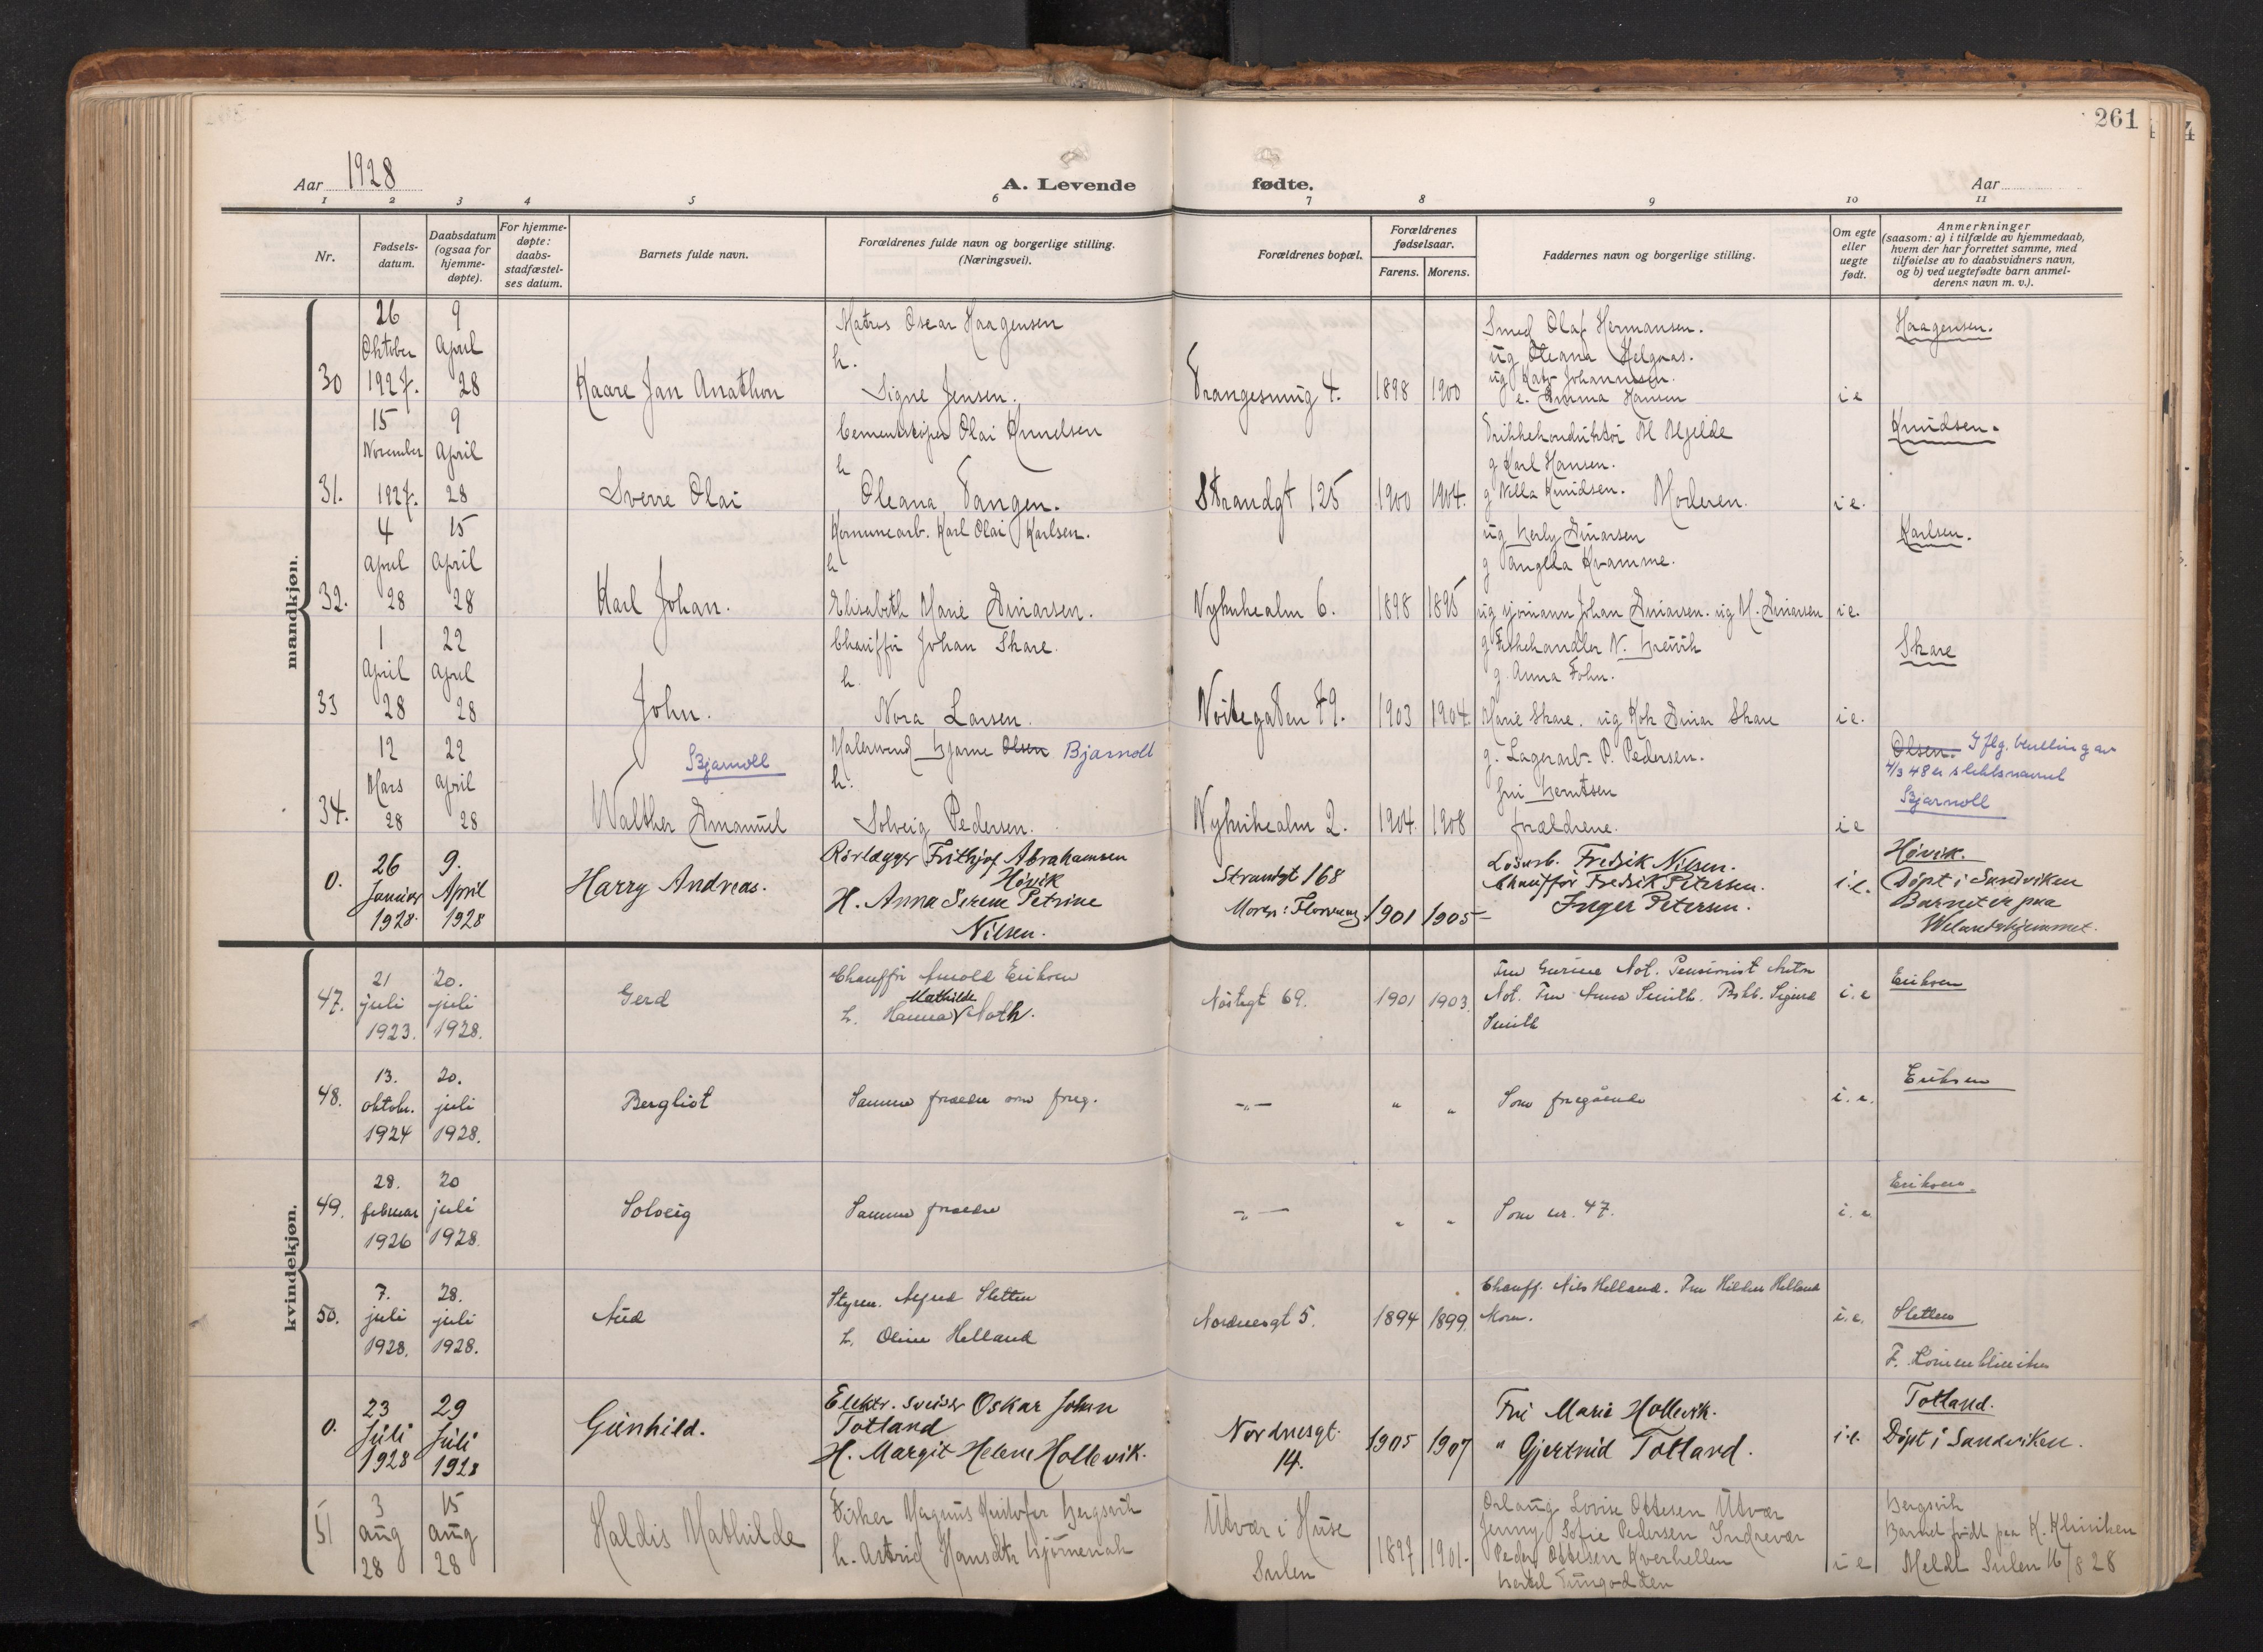 261
Aar 1928
A. Levende fødte.
Aar
1 2 3 4 5 6 7 8 9 10 11
Nr.
Fødsels-
datum.
Daabsdatum
(ogsaa for
hjemme-
døpte).
For hjemme-
døpte:
daabs-
stadfæstel-
ses datum.
Barnets fulde navn.
Forældrenes fulde navn og borgerlige stilling.
(Næringsvei).
Forældrenes bopæl.
Forældrenes
fødselsaar.
Farens. Morens.
Faddernes navn og borgerlige stilling.
Om egte
eller
uegte
født.
Anmerkninger
(saasom: a) i tilfælde av hjemmedaab,
hvem der har forrettet samme, med
tilføielse av to daabsvidners navn,
og b) ved uegtefødte barn anmel-
derens navn m. v.).
mandkjøn.
30
26
Oktober
1927.
9
April
28
Kaare Jan Anathon
Matros Oscar Haagensen
h.
Signe Jensen.
Trangesmug 4.
1898 1900
Smed Olaf Hermansen.
ug Oleana Helgaas.
ug Kate Johannesen.
e. Emma Hansen
i e
Haagensen.
31.
15
November
1927.
9
April
28
Sverre Olai
Cementstøper Olai Knudsen
h
Oleana Vangen.
Strandgt 125
1900 1904.
Trikkekonduktør M Mjelde
g Karl Hansen.
g Nella Knudsen. Moderen.
i e.
Knudsen.
32.
4
April
28
15
April
28
Karl Johan.
Komunearb. Karl Olai Karlsen.
h
Elisabeth Marie Einarsen.
Nykirkealm 6.
1898 1895
ug Herly Einarsen
g Angella Kvamme.
ug sjømann Johan Einarsen. ug M. Einarsen
i e.
Karlsen.
33
1
April
28
22
April
28
John.
Chauffør Johan Skare.
h.
Nora Larsen.
Nøstegaten 79.
1903 1904.
g Fiskehandler N. Breivik
g. Anna Fohn.
Marie Skare. ug Kok Einar Skare
i e.
Skare
34.
12
Mars
28
22
April
28
Bjarnoll
Walther Emanuel
Malersvend Bjarne Olsen Bjarnoll
h.
Solveig Pedersen.
Nykirkealm 2.
1904. 1908
g. Lagerarb. P. Pedersen.
fru Berntsen
forældrene.
i e
Olsen. Iflg. bevilling av
4/3 48 er slektsnavnet
Bjarnoll
0.
26
Januar
1928.
9.
April
1928
Harry Andreas.
Rørlægger Frithjof Abrahamsen
Høvik
H. Anna Serene Petrine
Nilsen.
Strandgt 168
1901 1905
Løsarb. Fredrik Nilsen.
Chauffør Fredrik Petersen.
Inger Petersen.
i. e.
Høvik.
Døpt i Sandviken
Barnet er paa
Welandshjemmet.
kvindekjøn.
47.
21
juli
1923.
20.
juli
1928.
Gerd
Chauffør Arnold Eriksen
Mathilde
h. Hanna Noth.
Nøstegt 69.
1901 1903.
Fru Gurine Not. Pensionist Anton
Not. Fru Anna Smith. Sigurd
Smith
i. e
Eriksen
48.
13.
oktober.
1924
20.
juli
1928.
Bergliot
Samme forældre som foreg.
-„-
„ „
Som foregående
i. e.
Eriksen
49.
28.
februar
1926
20
juli
1928.
Solveig
Samme forældre
-„-
„ „
Som nr. 47.
i. e
Eriksen.
50.
7.
juli
1928.
28.
juli
1928.
Aud
Styrm. Alfred Sletten
h. Oline Helland
Nordnesgt 5.
1894 1899.
Chauff. Nils Helland. Fru Hilda Helland
Moren.
i. e.
Sletten
F. Kvineklinikken
0.
23
Juli
1928
29
Juli
1928
Gunhild.
Elektr. sveiser Oskar Johan
Totland
H. Margit Helene Hollevik.
Nordnesgt.
14.
1905 1907
Fru Marie Hollevik.
" Gjertrud Totland.
i e.
Totland.
Døpt i Sandviken.
51
3
aug
28
15
aug
28
Haldis Mathilde
Fisker Magnus Kristofer Bergsvik
h. Astrid Hansdtr Bjørnenak
Utvær i Huse
Sulen
1897 1901.
Orlaug Lovise Ottesen Utvær
Jenny Sofie Pedersen Indrevær
Peder Ottesen Kverhellen
Bertel Tungodden
i e
Bergsvik
Barnet født paa K. Kliniken
Meldt Sulen 16/8 28